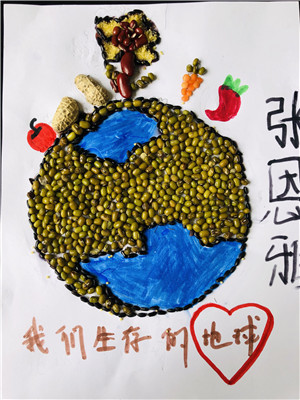 张恩雅
我们生存的地球